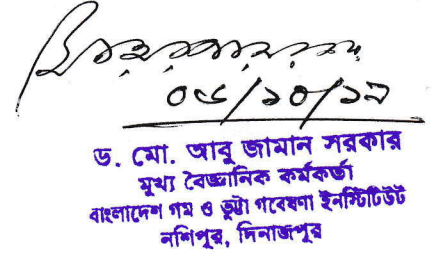 ০৬/১০/১৯
ড. মো. আবু জামান সরকার
মুখ্য বৈজ্ঞানিক কর্মকর্তা
বাংলাদেশ গম ও ভুট্টা গবেষণা ইনস্টিটিউট
নশিপুর, দিনাজপুর